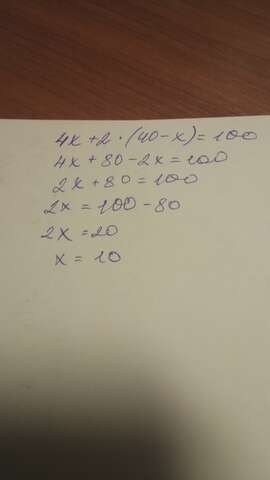 4x+2·(40-x)=100
4x+80-2x=100
2x+80=100
2x=100-80
2x=20
x=10